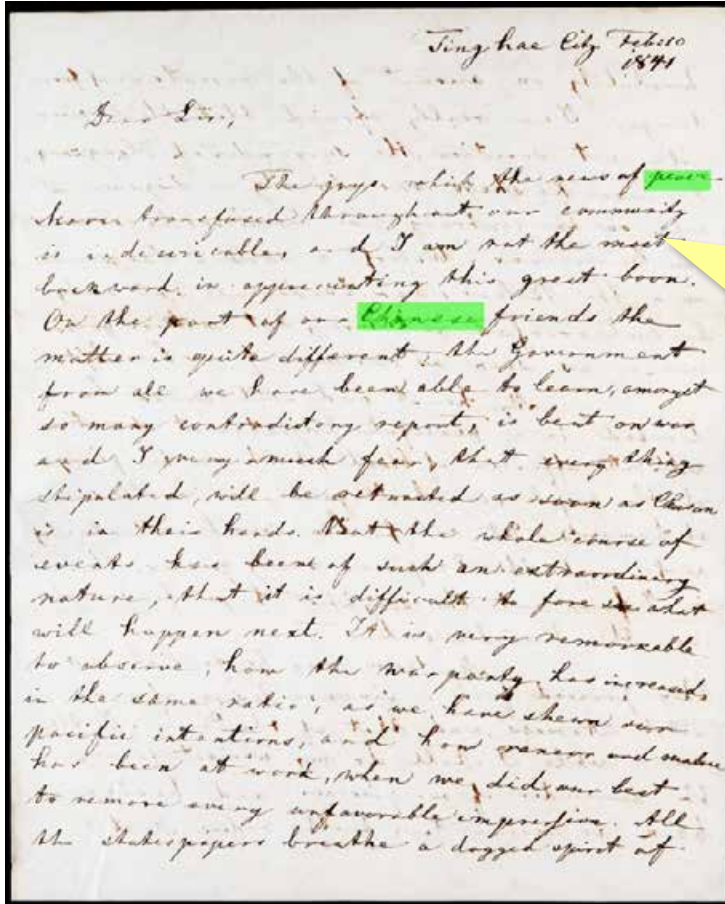 Ting hae City Feb 10
1841
Dear Sir,
The joys which the news of peace
have transfused throughout our community
is indescribable, and I am not the most
backward in appreciating this great boon.
On the part of our Chinese friends the
matter is quite different, the Government
from all we have been able to learn, amongst
so many contradictory report, is bent on war
and I very much fear, that every thing
stipulated, will be retracted as soon as Chusan
is in their hands. But the whole course of
events has been of such an extraordinary
nature, that it is difficult to foresee what
will happen next. It is very remarkable
to observe, how the war party has increased
in the same ratio, as we have shewn our
pacific intentions, and how rancour and malice
has been at work, when we did our best
to remove every unfavorable impression. All
the statespapers breathe a dogged spirit of